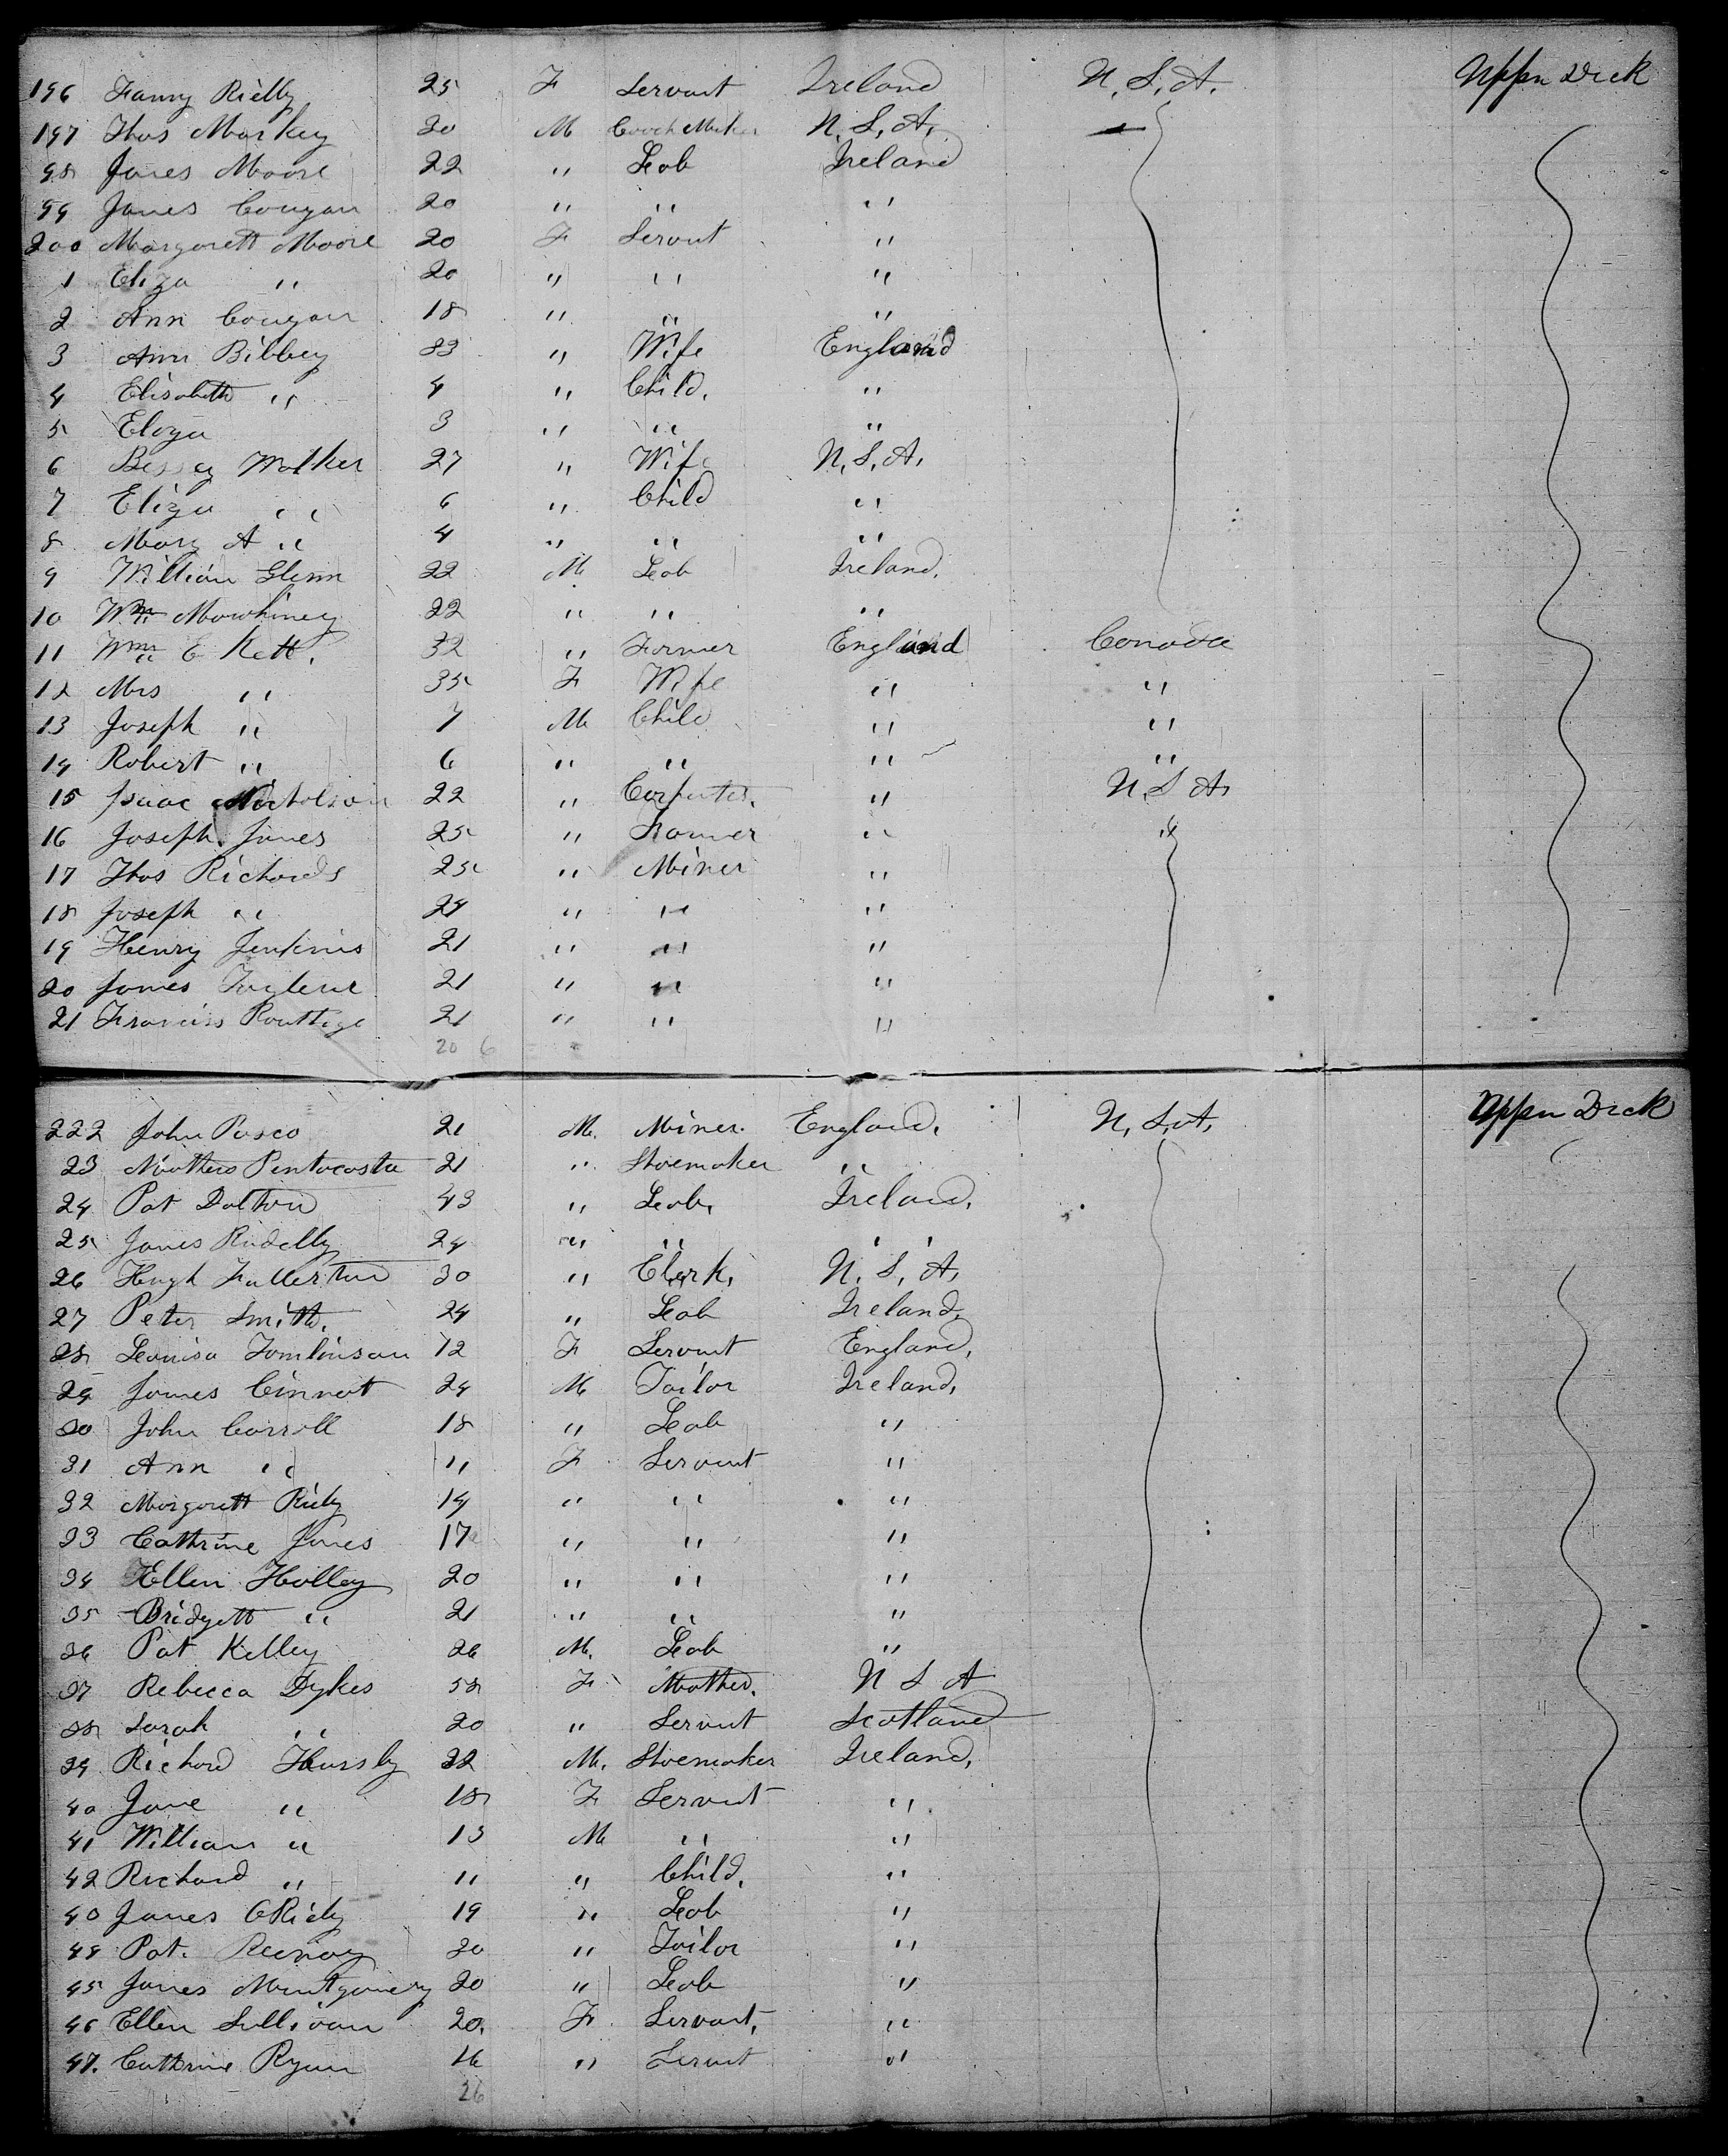 196 Fanny Rielly 25 F Servant Ireland U.S.A. Upper Deck
197 Thos Markey 20 M Coach Maker U.S.A.
98 James Moore 22 " Lab Ireland
99 James Cougan 20 " " "
200 Margarett Moore 20 F Servnt "
1 Eliza " 20 " " "
2 Ann Cougan 18 " " "
3 Ann Bibbey 33 " Wife England
4 Elisabeth " 4 " Child. "
5 Eloza 3 " " "
6 Bessey Walker 27 " Wife U.S.A.
7 Eliza " 6 " Child "
8 Mary A " 4 " " "
9 William Glenn 22 M Lab Ireland.
10 Wm Mawhiney 22 " " "
11 Wm E Kett. 32 " Farmer England Canada
12 Mrs " 35 F Wife " "
13 Joseph " 7 M Child " "
14 Robert " 6 " " " "
15 Isaac Nicholson 22 " Carpnter. " U.S.A.
16 Joseph Jones 25 " Farmer " "
17 Thos Richards 25 " Miner "
18 Joseph " 24 " " "
19 Henry Jenkins 21 " " "
20 James 21 " " "
21 Francis 21 " " "
20 6
222 John Pasco 21 M. Miner England. U.S.A. Upper Deck
23 Pentecosta 21 " Shoemaker "
24 Pat Dalton 43 " Lab. Ireland.
25 James 24 " " "
26 Hugh Fullerton 30 " Clerk. U.S.A.
27 Peter Smith. 24 " Lab Ireland.
28 Leouisa Tomlinson 12 F Servant England.
29 James 24 M Tailor Ireland.
30 John Carroll 18 " Lab "
31 Ann " 11 F Servent "
32 Margarett Riely 19 " " "
33 Cathrine Jones 17 " " "
34 Ellen Holley 20 " " "
35 Bridgett " 21 " " "
36 Pat Kelley 26 M. Lab "
37 Rebecca Dykes 58 F Mother. U S A
38 Sarah " 20 " Servnt Scotland
39 Richard 32 M. Shoemaker Ireland.
40 Jane " 18 F Servnt "
41 William " 13 M " "
42 Richard " 11 " Child. "
43 James ORiely 19 " Lab "
44 Pat. 20 " Tailor "
45 James Montgomery 20 " Lab "
46 Ellen Sullivan 20. F Servant. "
47. Cathrine Ryan 16 " Servnt "
26